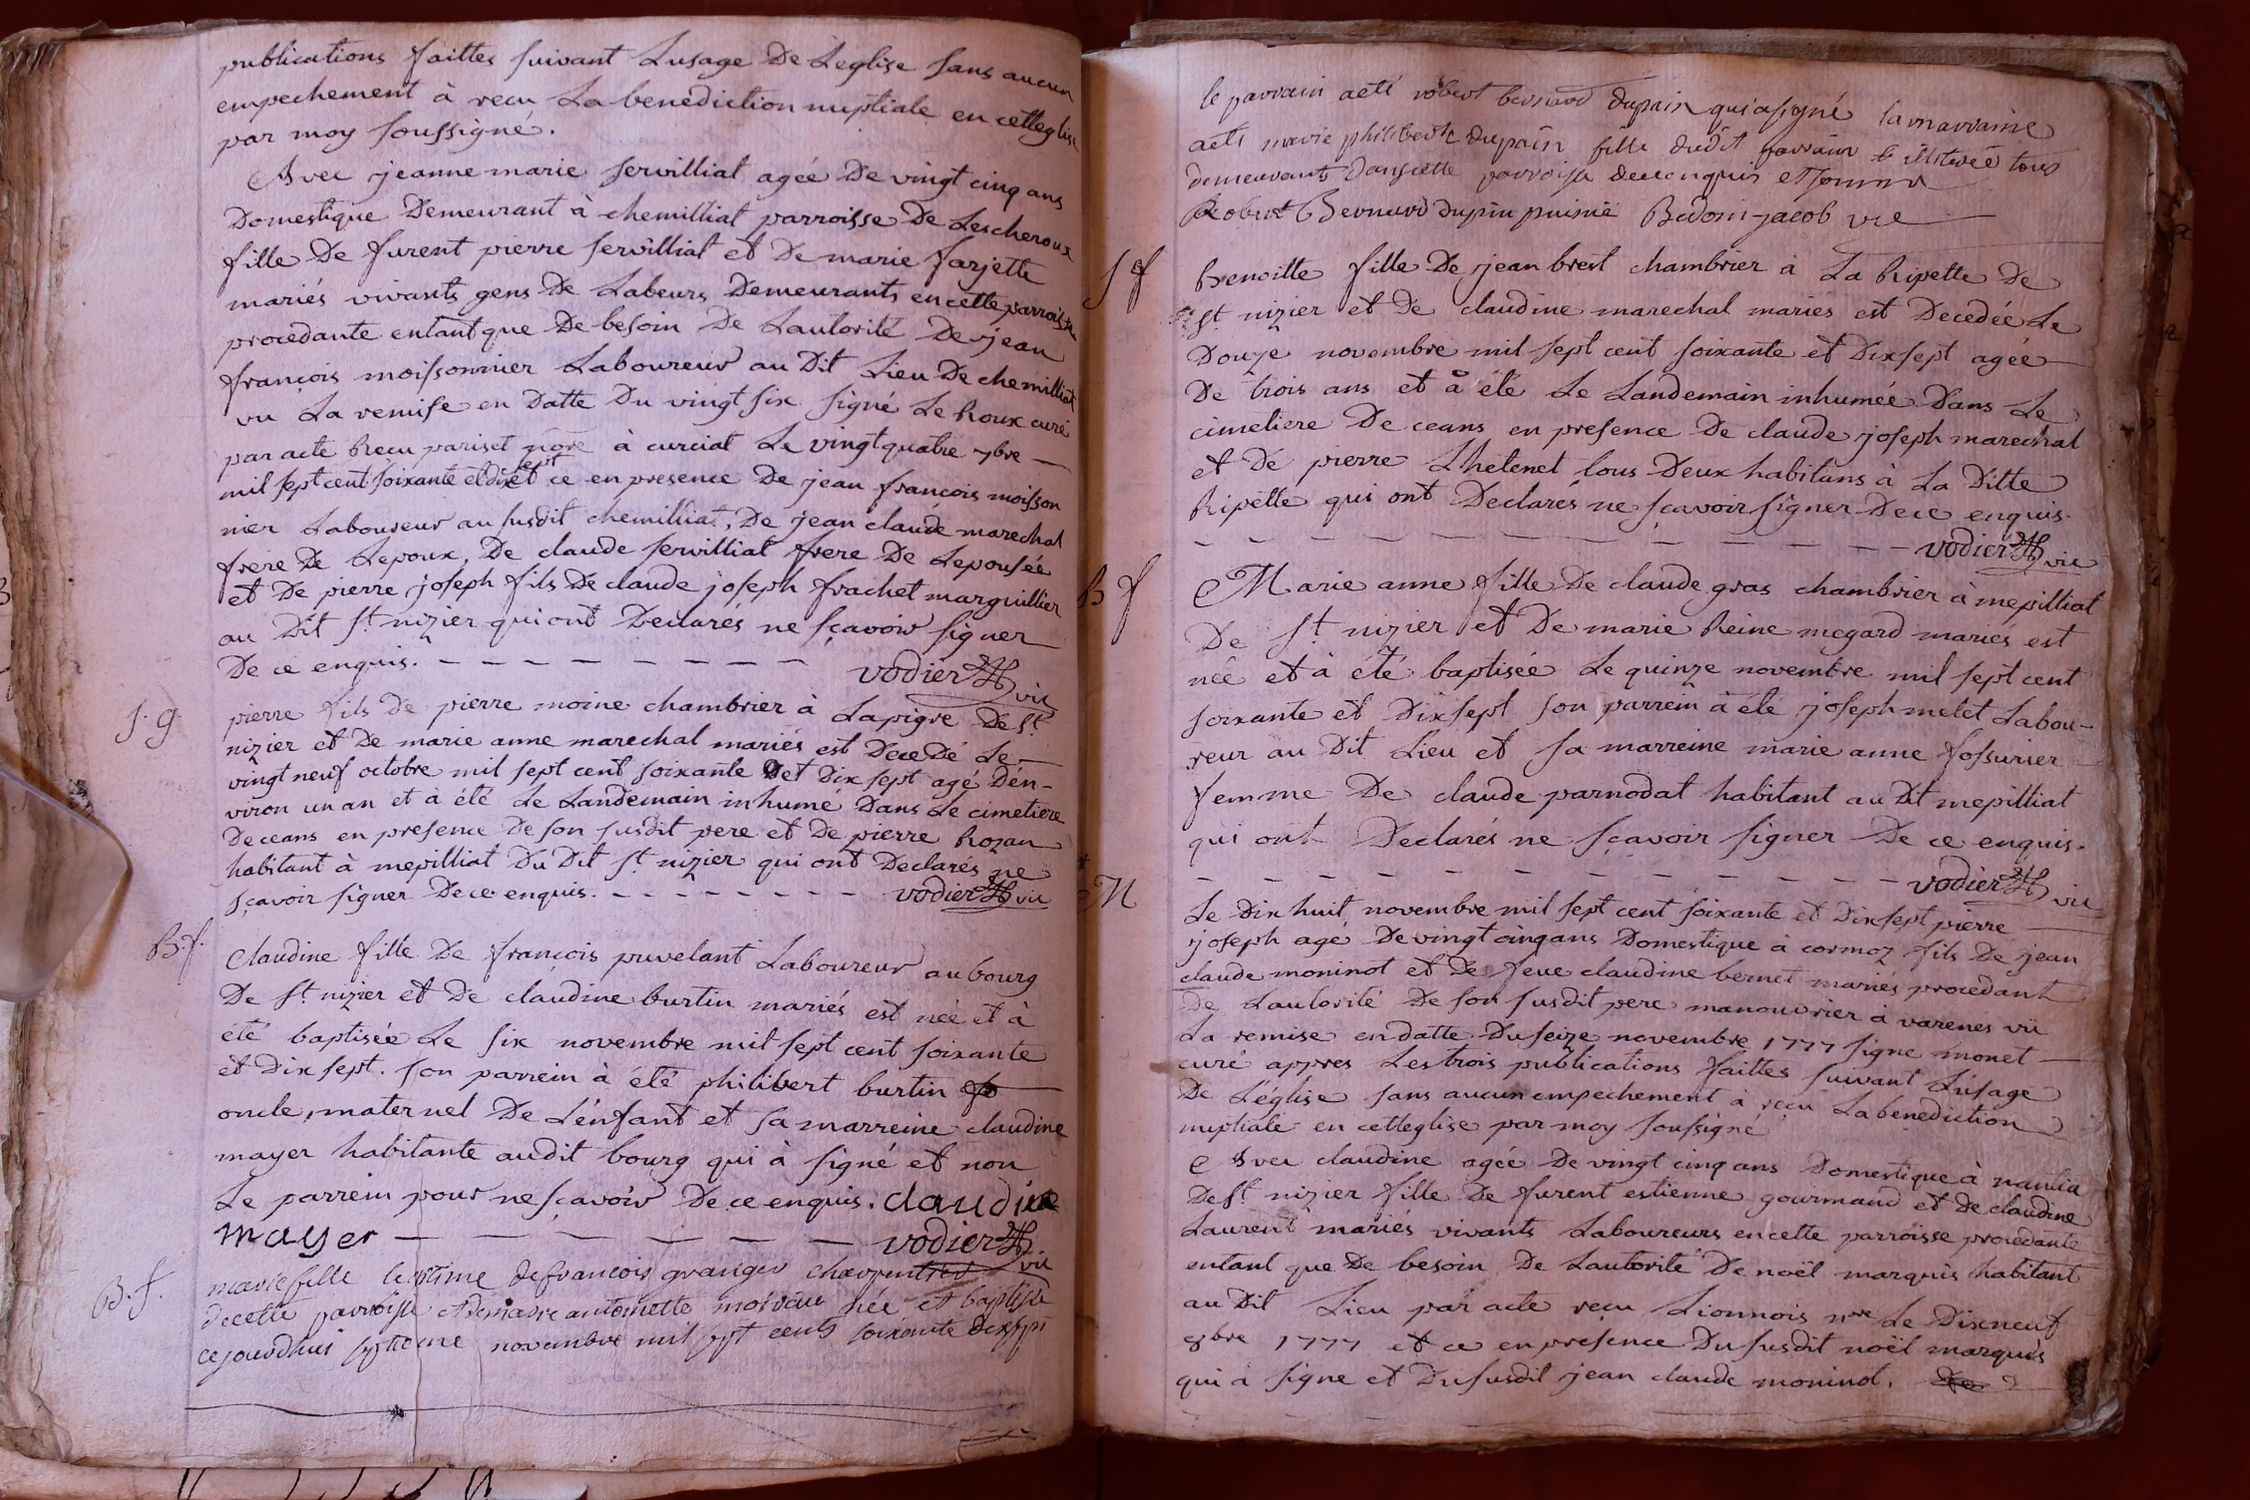 publications faittes suivant Lusage De Leglise sans aucun
empechement à recu La benediction nuptiale en cetteglise
par moy soussigné.
Avec jeanne marie servilliat agée De vingt cinq ans
Domestique Demeurant à chemilliat parroisse De Lescheroux
fille De furent pierre servilliat et De marie farjette
mariés vivants gens De Labeurs Demeurants en cette parroisse
procedante entant que De besoin De Lautorité De jean
françois moissonnier Laboureur au Dit Lieu De chemilliat
vu La remise en Datte Du vingt six signé Le Roux curé
par acte Recu pariset nore à curciat Le vingtquatre 7bre
mil sept cent soixante et dix sept et ce en presence De jean francois moisson
nier Laboureur au susdit chemilliat, De jean claude marechal
frere De Lepoux, De claude servilliat frere De Lepousée
et De pierre joseph fils De claude joseph frachet marguillier
au Dit St nizier qui ont Declarés ne sçavoir signer
De ce enquis. vodier vic
S. g.
pierre fils De pierre moine chambrier à Lapigre De St
nizier et De marie anne marechal mariés est Decedé Le
vingt neuf octobre mil sept cent soixante et Dix sept agé Dén-
viron un an et à été Le Landemain inhumé Dans Le cimetiere
De ceans en presence De son susdit pere et De pierre Rozan
habitant à mepilliat Du Dit St nizier qui ont Declarés ne
sçavoir signer De ce enquis. vodier vic
B. f.
Claudine fille De françois puvelant Laboureur au bourg
De St nizier et De claudine burtin mariés est née et à
été baptisée Le six novembre mil sept cent soixante
et Dix sept. son parrein à été philibert burtin
oncle maternel De Lénfant et sa marreine claudine
mayer habitante audit bourg qui à signé et non
Le parrein pour ne sçavoir De ce enquis. claudine
mayer vodier vic
B. f.
marie fille legitime de francois granger charpentier
de cette parroisse et de marie antoinette moireau née et baptisée
cejourdhui septieme novembre mil sept cents soixante dixsept
le parrain aété robert bernard dupain qui a signé la marraine
aété marie philiberte dupain fille dudit parrain illiterée tous
demeurants dans cette parroisse de ce enquis
Robert Bernard dupin puiné Bedoin-jacob vic
S f
Benoitte fille De jean brest chambrier à La Ripette De
St nizier et De claudine marechal mariés est Decedée Le
Douze novembre mil sept cent soixante et Dixsept agée
De trois ans et à été Le Landemain inhumée Dans Le
cimetiere De ceans en presence De claude joseph marechal
et De pierre Lhetenet tous Deux habitans à La Ditte
Ripette qui ont Declarés ne sçavoir signer De ce enquis.
vodier vic
B f
Marie anne fille De claude gras chambrier à mepilliat
De St nizier et De marie Reine megard mariés est
née et à été baptisée Le quinze novembre mil sept cent
soixante et Dixsept son parrein à été joseph melet Labou-
reur au Dit Lieu et sa marreine marie anne fossurier
femme De claude parnodat habitant au Dit mepilliat
qui ont Declarés ne sçavoir signer De ce enquis.
vodier vic
M
Le Dix huit novembre mil sept cent soixante et Dixsept pierre
joseph agé De vingt cinq ans Domestique à cormoz fils De jean
claude moninot et De feue claudine bernet mariés procedant
De Lautorité De son susdit pere manouvrier à varenes vü
La remise en datte Du seize novembre 1777 signé monet
curé appres Les trois publications faittes suivant Lúsage
De L'église sans aucun empechement à reçu La benediction
nuptiale en cetteglise par moy soussigné
Avec claudine agée De vingt cinq ans Domestique à nantia
De St nizier fille De furent estienne gourmand et De claudine
Laurent mariés vivants Laboureurs en cette parroisse procedante
entant que De besoin De Lautorité De noël marquis habitant
au Dit Lieu par acte reçu Lionnois nre Le Dixneuf
8bre 1777 et ce en presence Du susdit noël marquis
qui à signé et Du susdit jean claude moninot.